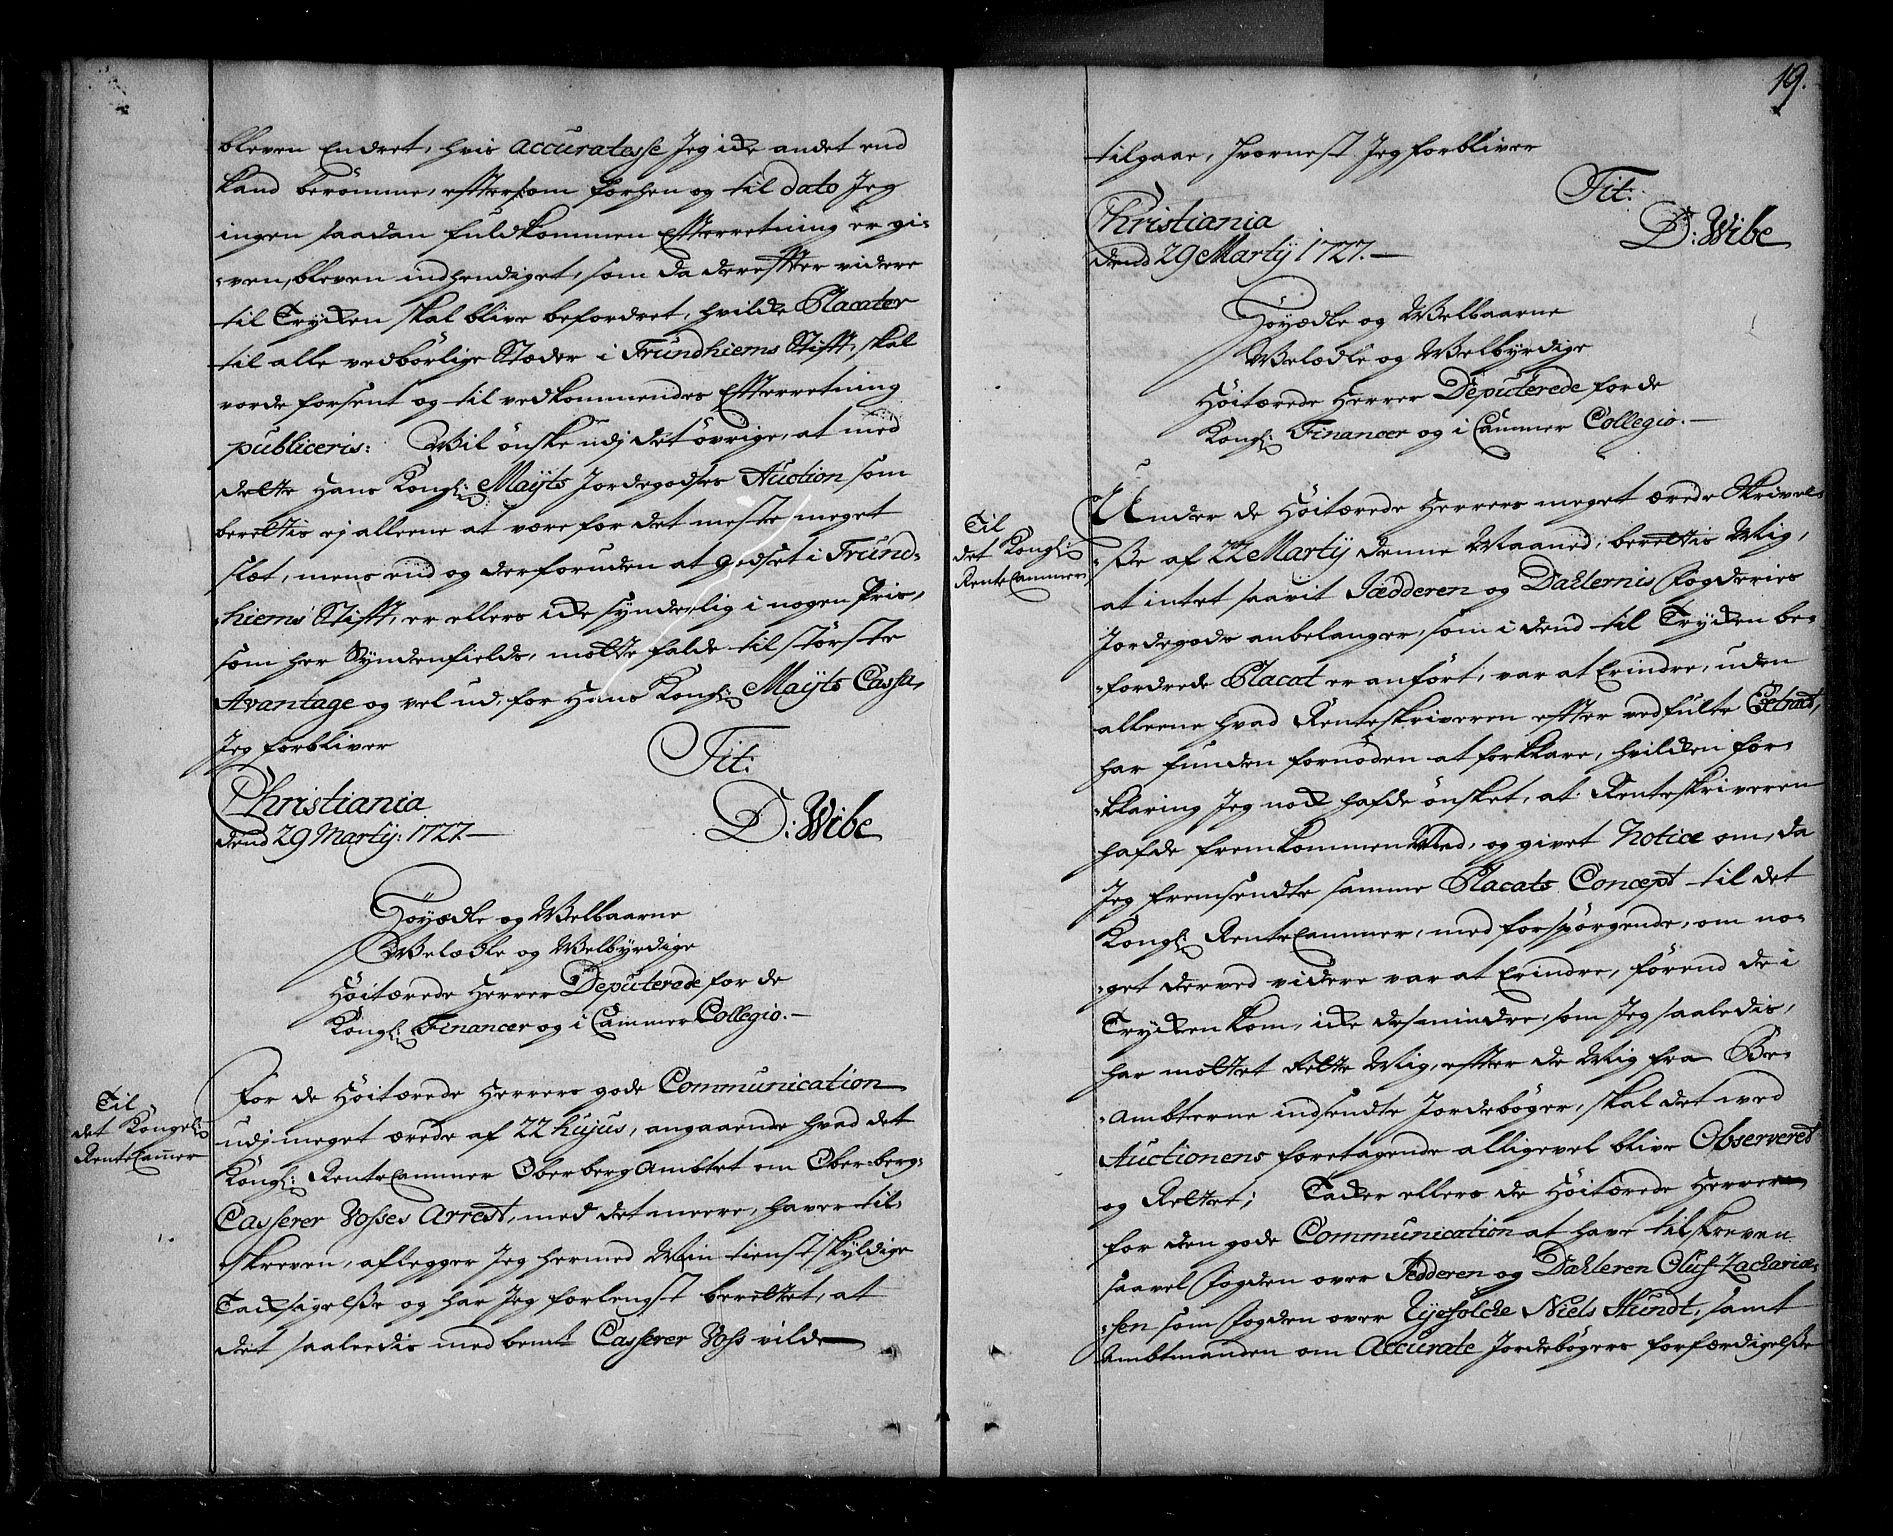 bleven Endret, hvis accuratesse Jeg icke andet end
kand berømme, efftersom forhen og til dato Jeg
ingen saadan fuldkommen Effterretning er gi-
-ven, bleven indhendiget, som da dereffter videre
til Trycken skal blive befordret, hvilcke Placater
til alle vedbørlige Stæder i Trundhiems Stifft, skal
vorde forsent og til vedkommendes Effterretning
publiceris: Wil ønske udj det øvrige, at med
dette Hans Kongl: Mayts Jordegodses Auction som
berettis ej alleene at være for det meste meget
slet, mens end og derforuden at godset i Trund-
-hiems Stifft, er ellers icke synderlig i nogen Priis,
som her Syndenfields, motte falde til største
Avantage og vel ud, for Hans Kongl: Mayts Cassa,
Jeg forbliver
Tit:
Christiania
dend 29 Martij: 1727.
D: Wibe
Høyædle og Welbaarne
Welædle og Welbyrdige
Høitærede Herrer Deputerede for de
Kongl: Financer og i Cammer Collegio.
Til
det Kongel:
RenteCammer
For de Høitærede Herrers gode Communication
udj meget ærede af 22 hujus, angaaende hvad det
Kongl: RenteCammer OberbergAmbtet om Oberberg-
Casserer Vosses Arrest, med det meere, haver til-
-skreven, aflegger Jeg hermed Min tienstskyldige
Tacksigelsse og har Jeg forlengst berettet, at
det saaleedis med bemt Casserer Voss vilde
19.
tilgaae, hvornest Jeg forbliver
Tit:
Christiania
dend 29 Martij 1727.
D: Wibe
Høyædle og Welbaarne
Welædle og Welbyrdige
Høitærede Herrer Deputerede for de
Kongl: Financer og i Cammer Collegio.
Til
det Kongl:
RenteCammer
Under de Høitærede Herrers meget ærede Skrivel-
-sse af 22 Martij denne Maaned, berettis Mig,
at intet saavit Jædderen og Dahlernis Fogderies
Jordegods anbelanger, som i dend til Trycken be-
-fordrede Placat er anført, var at Erindre, uden
alleene hvad Renteskriveren effter vedfulte Extract,
har funden fornøden at forklare, hvilcken for-
-klaring Jeg nock hafde ønsket, at Renteskriveren
hafde fremkommen Med, og givet Notice om, da
Jeg fremsendte samme Placats Concept til det
Kongl: RenteCammer, med forspørgende, om no-
-get derved videre var at Erindre, førend de i
Trycken kom, icke desmindre, som Jeg saaledis,
har mottet Rette Mig, effter de Mig fra Be-
-Ambterne indsendte Jordebøger, skal det wed
Auctionens foretagende alligevel blive Observeret
og Rettet; Tacker ellers de Høitærede Herrer
for den gode Communication at have tilskreven
saavel Fogden over Jædderen og Dahleren Oluf Zachariæ-
-sen som Fogden over Ryefølcke Niels Hundt, samt
Ambtmanden om Accurate Jordebøgers forfærdigelsse